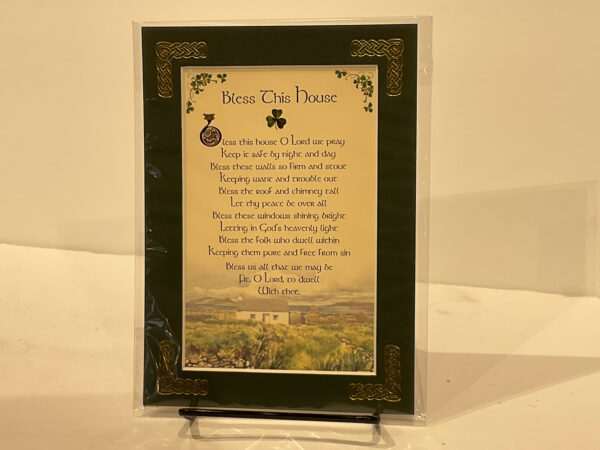 Bless This House
Bless this house O Lord we pray
Keep it safe by night and day
Bless these walls so firm and stout
Keeping want and trouble out
Bless the roof and chimney tall
Let thy peace be over all
Bless these windows shining bright
Letting in God's heavenly light
Bless the folk who dwell within
Keeping them pure and free from sin
Bless us all that we may be
Fit, O Lord, to dwell
With thee.